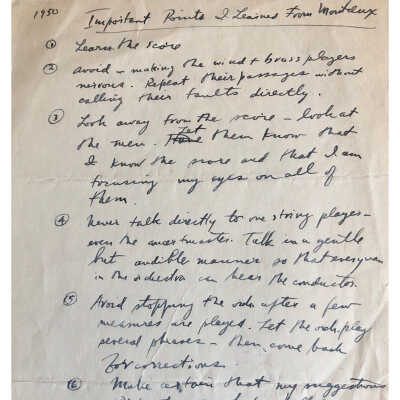 1950 Important Points I Learned From Monteux
① Learn the score
② avoid — making the wind + brass players
nervous. Repeat their passages without
calling their faults directly.
③ Look away from the score — look at
the men. Let them know that
I know the score and that I am
focusing my eyes on all of
them.
④ Never talk directly to one string player —
even the concertmaster. Talk in a gentle
but audible manner so that everyman
in the orchestra can hear the conductor.
⑤ Avoid stopping the orch. after a few
measures are played. Let the orch. play
several phrases — then, come back
for corrections.
⑥ Make certain that my suggestions